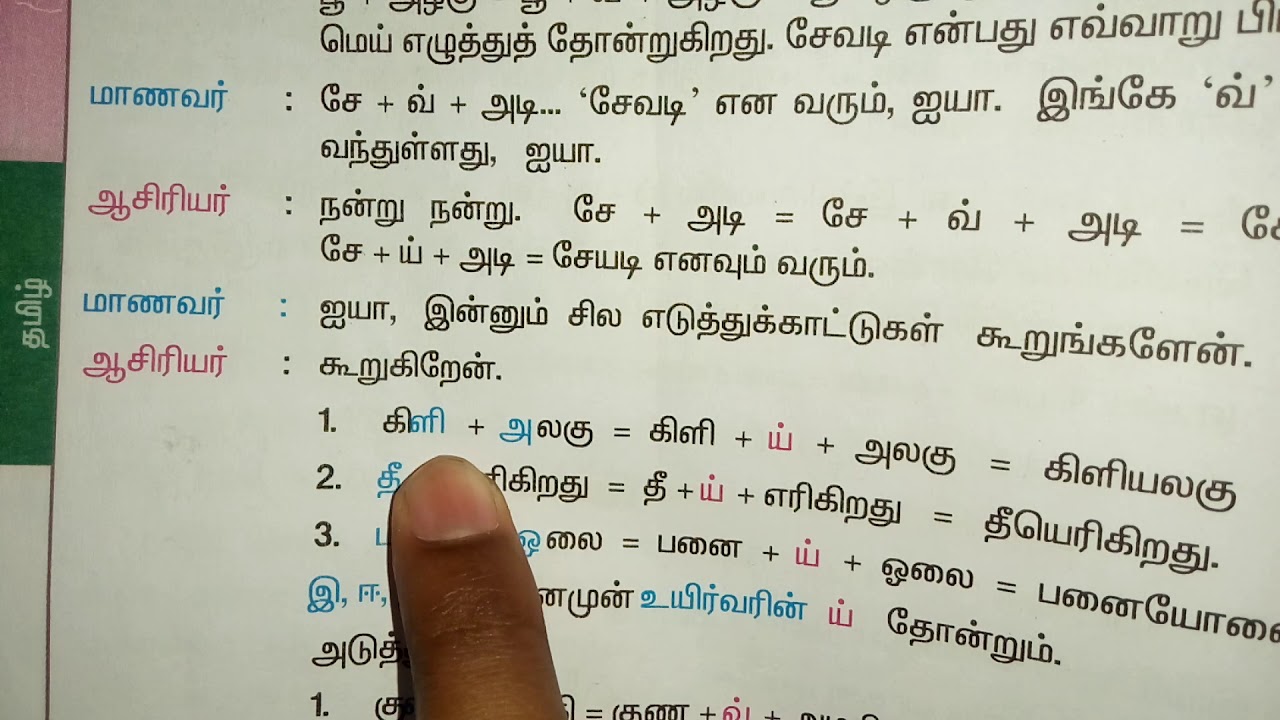 மெய் எழுத்துத் தோன்றுகிறது. சேவடி என்பது எவ்வாறு
மாணவர் : சே + வ் + அடி... ‘சேவடி’ என வரும், ஐயா. இங்கே ‘வ்’
வந்துள்ளது, ஐயா.
ஆசிரியர் : நன்று நன்று. சே + அடி = சே + வ் + அடி =
சே + ய் + அடி = சேயடி எனவும் வரும்.
மாணவர் : ஐயா, இன்னும் சில எடுத்துக்காட்டுகள் கூறுங்களேன்.
ஆசிரியர் : கூறுகிறேன்.
1. கிளி + அலகு = கிளி + ய் + அலகு = கிளியலகு
2. தீ = தீ + ய் + எரிகிறது = தீயெரிகிறது.
3. = பனை + ய் + ஓலை =
இ, ஈ, உயிர்வரின் ய் தோன்றும்.
1. + வ் +
தமிழ்